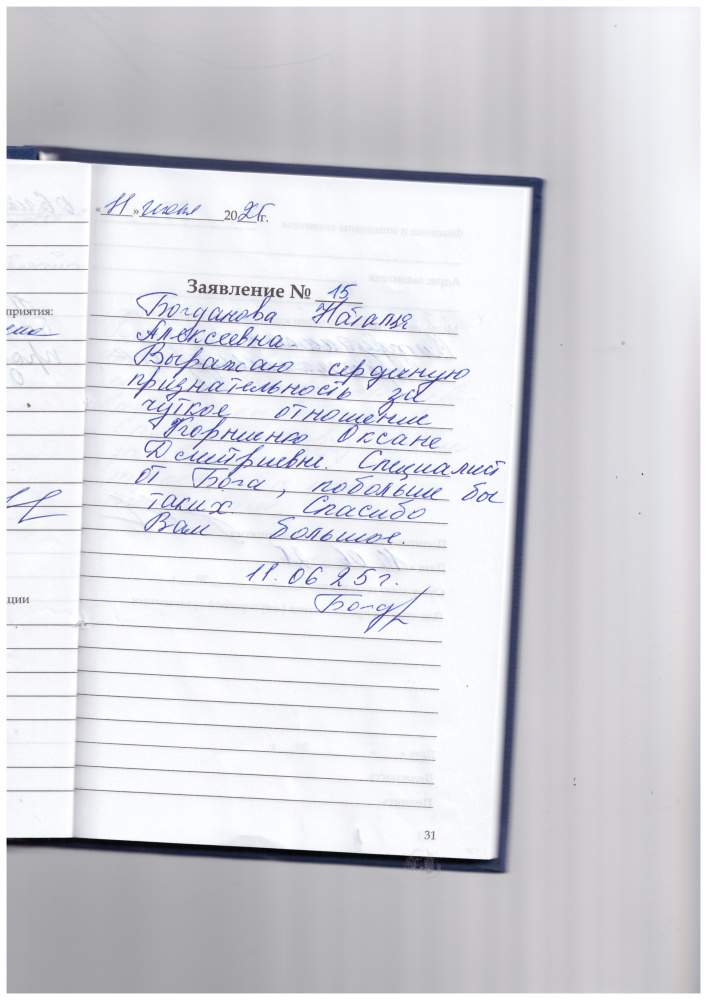 «11» июня 2025г.
Заявление № 15
Богданова Наталья
Алексеевна.
Выражаю сердечную
признательность за
чуткое отношение
Оксане
Дмитриевне. Специалист
от Бога, побольше бы
таких Спасибо
Вам большое.
11.06 25г.
приятия:
ции
31